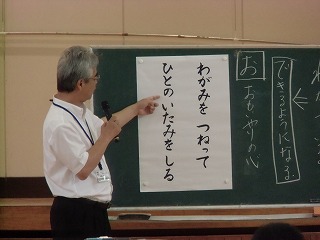 できるようになる
お
おもいやりの心
わがみを つねって
ひとの いたみをしる